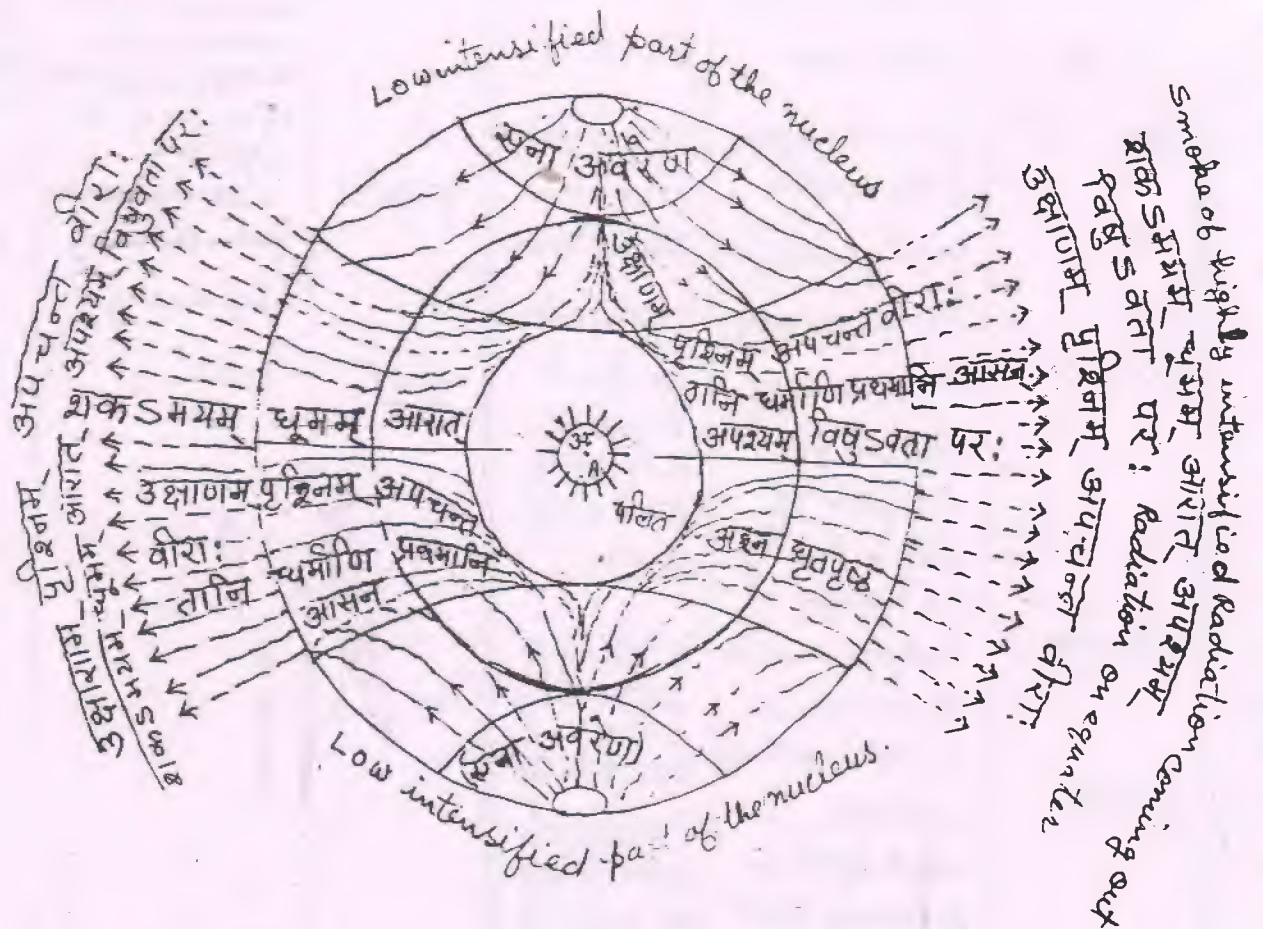 Low intensified part of the nucleus
एना अवरेण
उक्षाणम्
पृश्निम् अपचन्त वीराः
तानि धर्माणि प्रथमानि आसन्
अपश्यम् विषुऽवता परः
शकऽमयम् धूमम् आरात्
उक्षाणम् पृश्निम् अपचन्त
वीराः
तानि धर्माणि प्रथमानि
आसन्
अ
A
पलित
अश्न घृतपृष्ठ
एना अवरेण
Low intensified part of the nucleus.
उक्षाणम् पृश्निम् अपचन्त वीराः
शकऽमयम् धूमम् आरात् अपश्यम् विषुवता परः
Smoke of highly intensified Radiation coming out
शकऽमयम् धूमम् आरात् अपश्यम्
विषुऽवता परः Radiation on equater
उक्षाणम् पृश्निम् अपचन्त वीराः